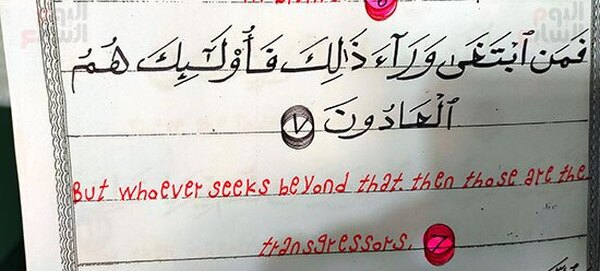 فَمَنِ ٱبْتَغَىٰ وَرَآءَ ذَٰلِكَ فَأُوْلَٰٓئِكَ هُمُ
ٱلْعَادُونَ ٧
But whoever seeks beyond that. then those are the
transgressors. 7